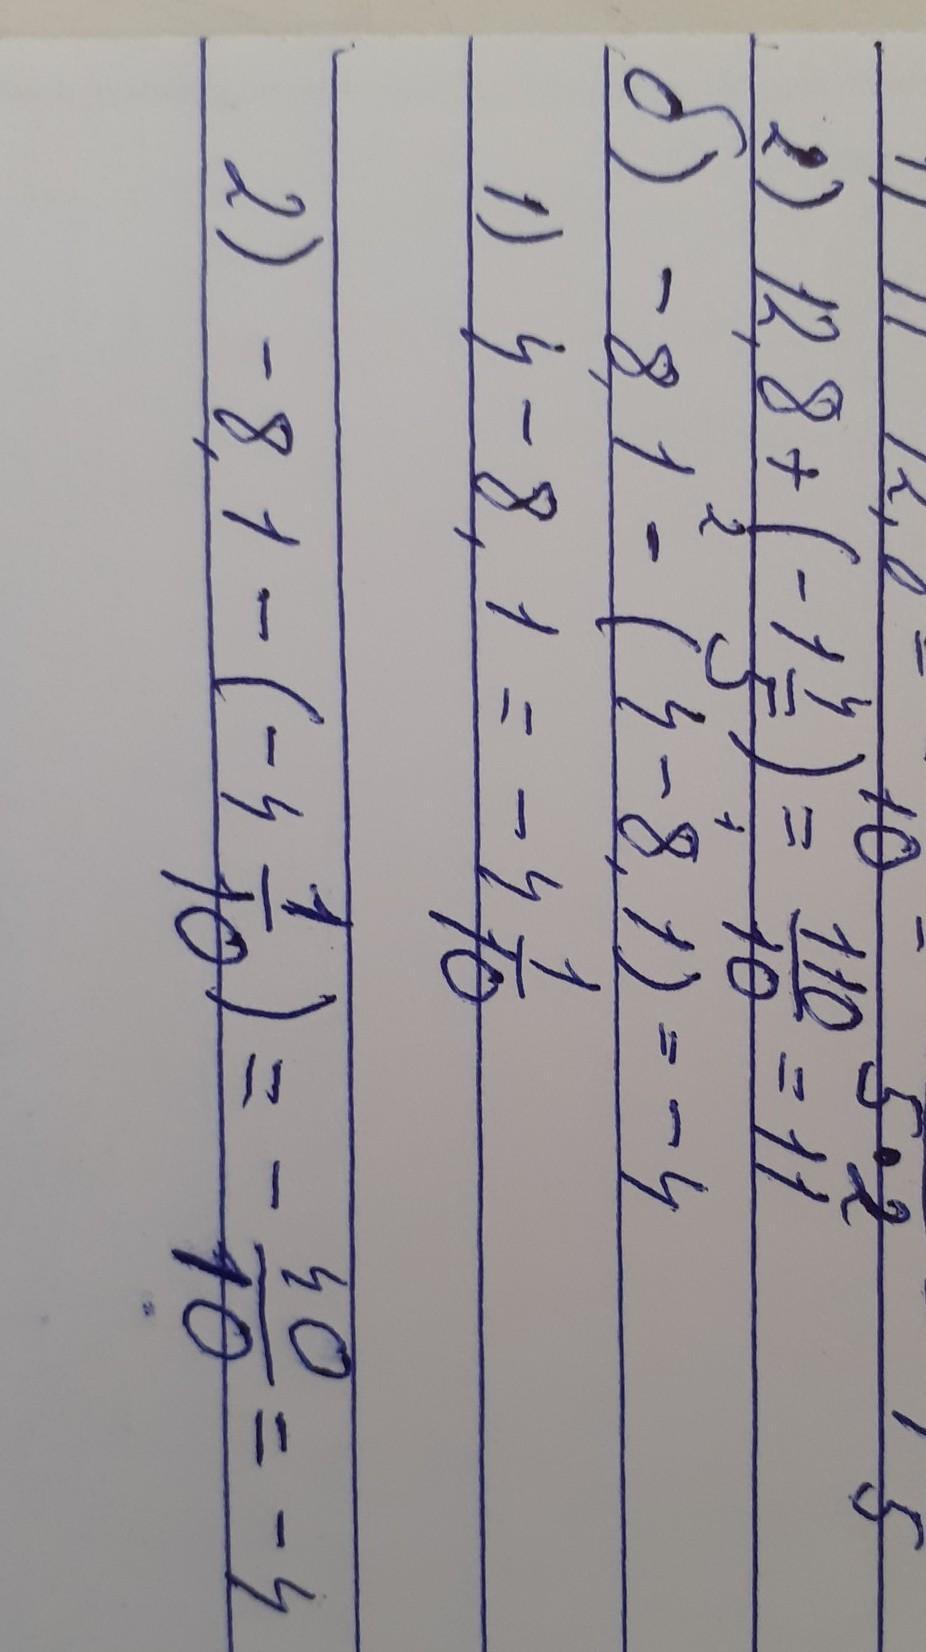 2) 12,8 + (-1 4/5) = 110/10 = 11
б) -8,1 - (4 - 8,1) = -4
1) 4 - 8,1 = -4 1/10
2) -8,1 - (-4 1/10) = - 40/10 = -4